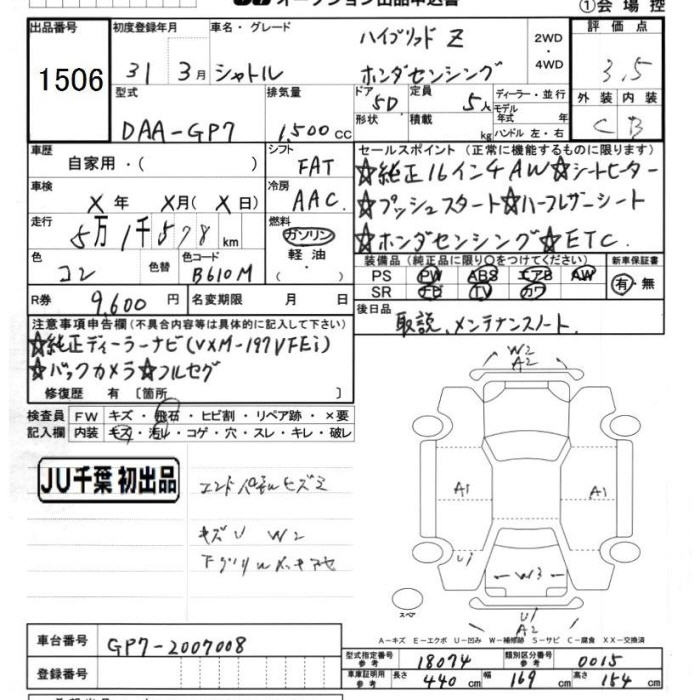 オークション出品申込書
①会場控
出品番号
1506
初度登録年月
31 3月
車名・グレード
シャトル
ハイブリッド Z
ホンダセンシング
2WD
・
4WD
評価点
3.5
外装 内装
C B
型式
DAA-GP7
排気量
1,500cc
ドア 形状
5D
定員
5人
積載
kg
ディーラー・並行
モデル年式 年
ハンドル 左・右
車歴
自家用・(
シフト
FAT
車検
X年 X月( X日)
冷房
AAC
走行
5万1千578km
燃料
ガソリン
軽油
・( )
色
コン
色替
色コード
B610M
R券
9,600円
名変期限 月 日
セールスポイント(正常に機能するものに限ります)
☆純正16インチAW☆シートヒーター
☆プッシュスタート☆ハーフレザーシート
☆ホンダセンシング☆ETC
装備品(純正品に限り○をつけてください)
PS PW ABS エアB AW
SR ナビ TV カワ
新車保証書
有・無
後日品
取説、メンテナンスノート
注意事項申告欄(不具合内容等は具体的に記入して下さい)
☆純正ディーラーナビ(VXM-197VFEi)
☆バックカメラ☆フルセグ
修復歴 有 〔箇所 〕
検査員記入欄
FW キズ・飛石・ヒビ割・リペア跡・×要
内装 キズ・汚れ・コゲ・穴・スレ・キレ・破レ
JU千葉 初出品
エンドパネルヒズミ
キズU W2
W2
A2
A1
A1
U1
W3
U1
A2
スペア
A−キズ E−エクボ U−凹み W−補修跡 S−サビ C−腐食 XX−交換済
車台番号
GP7-2007008
登録番号
型式指定番号 参考
18074
類別区分番号 参考
0015
車庫証明用 参考
長さ 440cm 幅 169cm 高さ 154cm